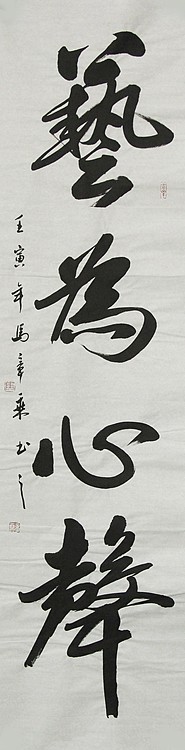 藝為心聲
壬寅年馬章乘書